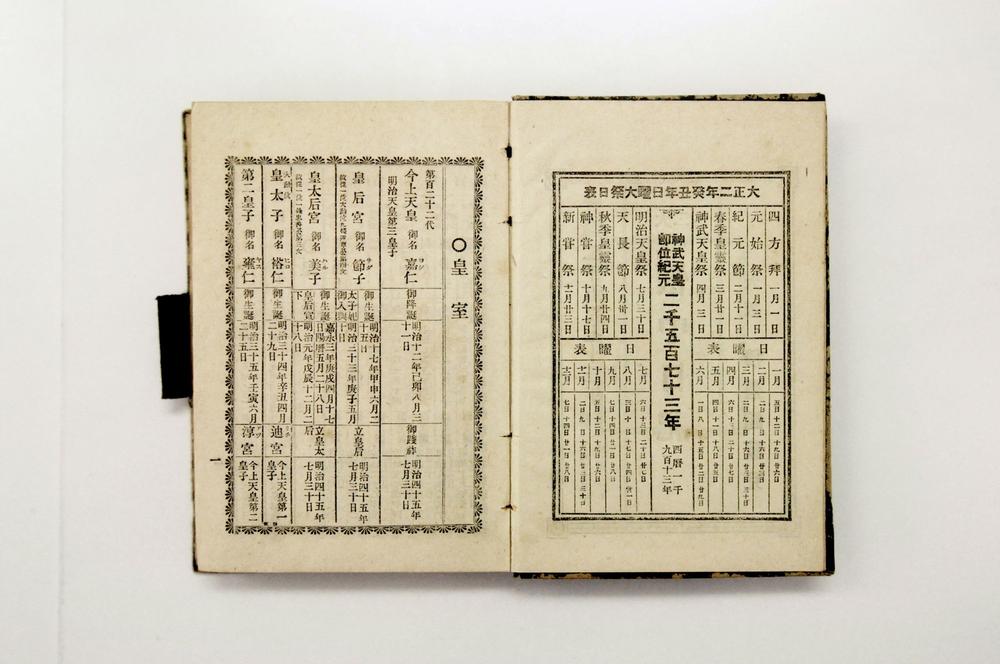 大正二年癸丑年日曜大祭日表
四方拜 一月一日
元始祭 一月三日
紀元節 二月十一日
春季皇靈祭 三月廿一日
神武天皇祭 四月三日
日曜表
一月 五日 十二日 十九日 廿六日
二月 二日 九日 十六日 廿三日
三月 二日 九日 十六日 廿三日 三十日
四月 六日 十三日 二十日 廿七日
五月 四日 十一日 十八日 廿五日
六月 一日 八日 十五日 廿二日 廿九日
神武天皇即位紀元 二千五百七十三年
西曆一千九百十三年
明治天皇祭 七月三十日
天長節 八月卅一日
秋季皇靈祭 九月廿四日
神嘗祭 十月十七日
新嘗祭 十一月廿三日
日曜表
七月 六日 十三日 二十日 廿七日
八月 三日 十日 十七日 廿四日 卅一日
九月 七日 十四日 廿一日 廿八日
十月 五日 十二日 十九日 廿六日
十一月 二日 九日 十六日 廿三日 三十日
十二月 七日 十四日 廿一日 廿八日
○皇室
第百二十二代
今上天皇 御名 嘉仁 ヨシ
明治天皇第三皇子
御降誕 明治十二年己卯八月三十一日
御踐祚 明治四十五年七月三十日
皇后宮 御名 節子 サダ
御生誕 明治十七年甲申六月二十五日
太子妃御入輿 明治三十三年庚子五月十日
立皇后 明治四十五年七月三十日
皇太后宮 御名 美子 ハル
御生誕 嘉永三年庚戌四月十七日陽曆五月二十八日
皇后宣下 明治元年戊辰十二月二十八日
立皇太后 明治四十五年七月三十日
皇太子 御名 裕仁 ヒロ
御生誕 明治三十四年辛丑四月二十九日
迪宮 ミチ 今上天皇第一皇子
第二皇子 御名 雍仁 ヤス
御生誕 明治三十五年壬寅六月二十五日
淳宮 アツ 今上天皇第二皇子
一